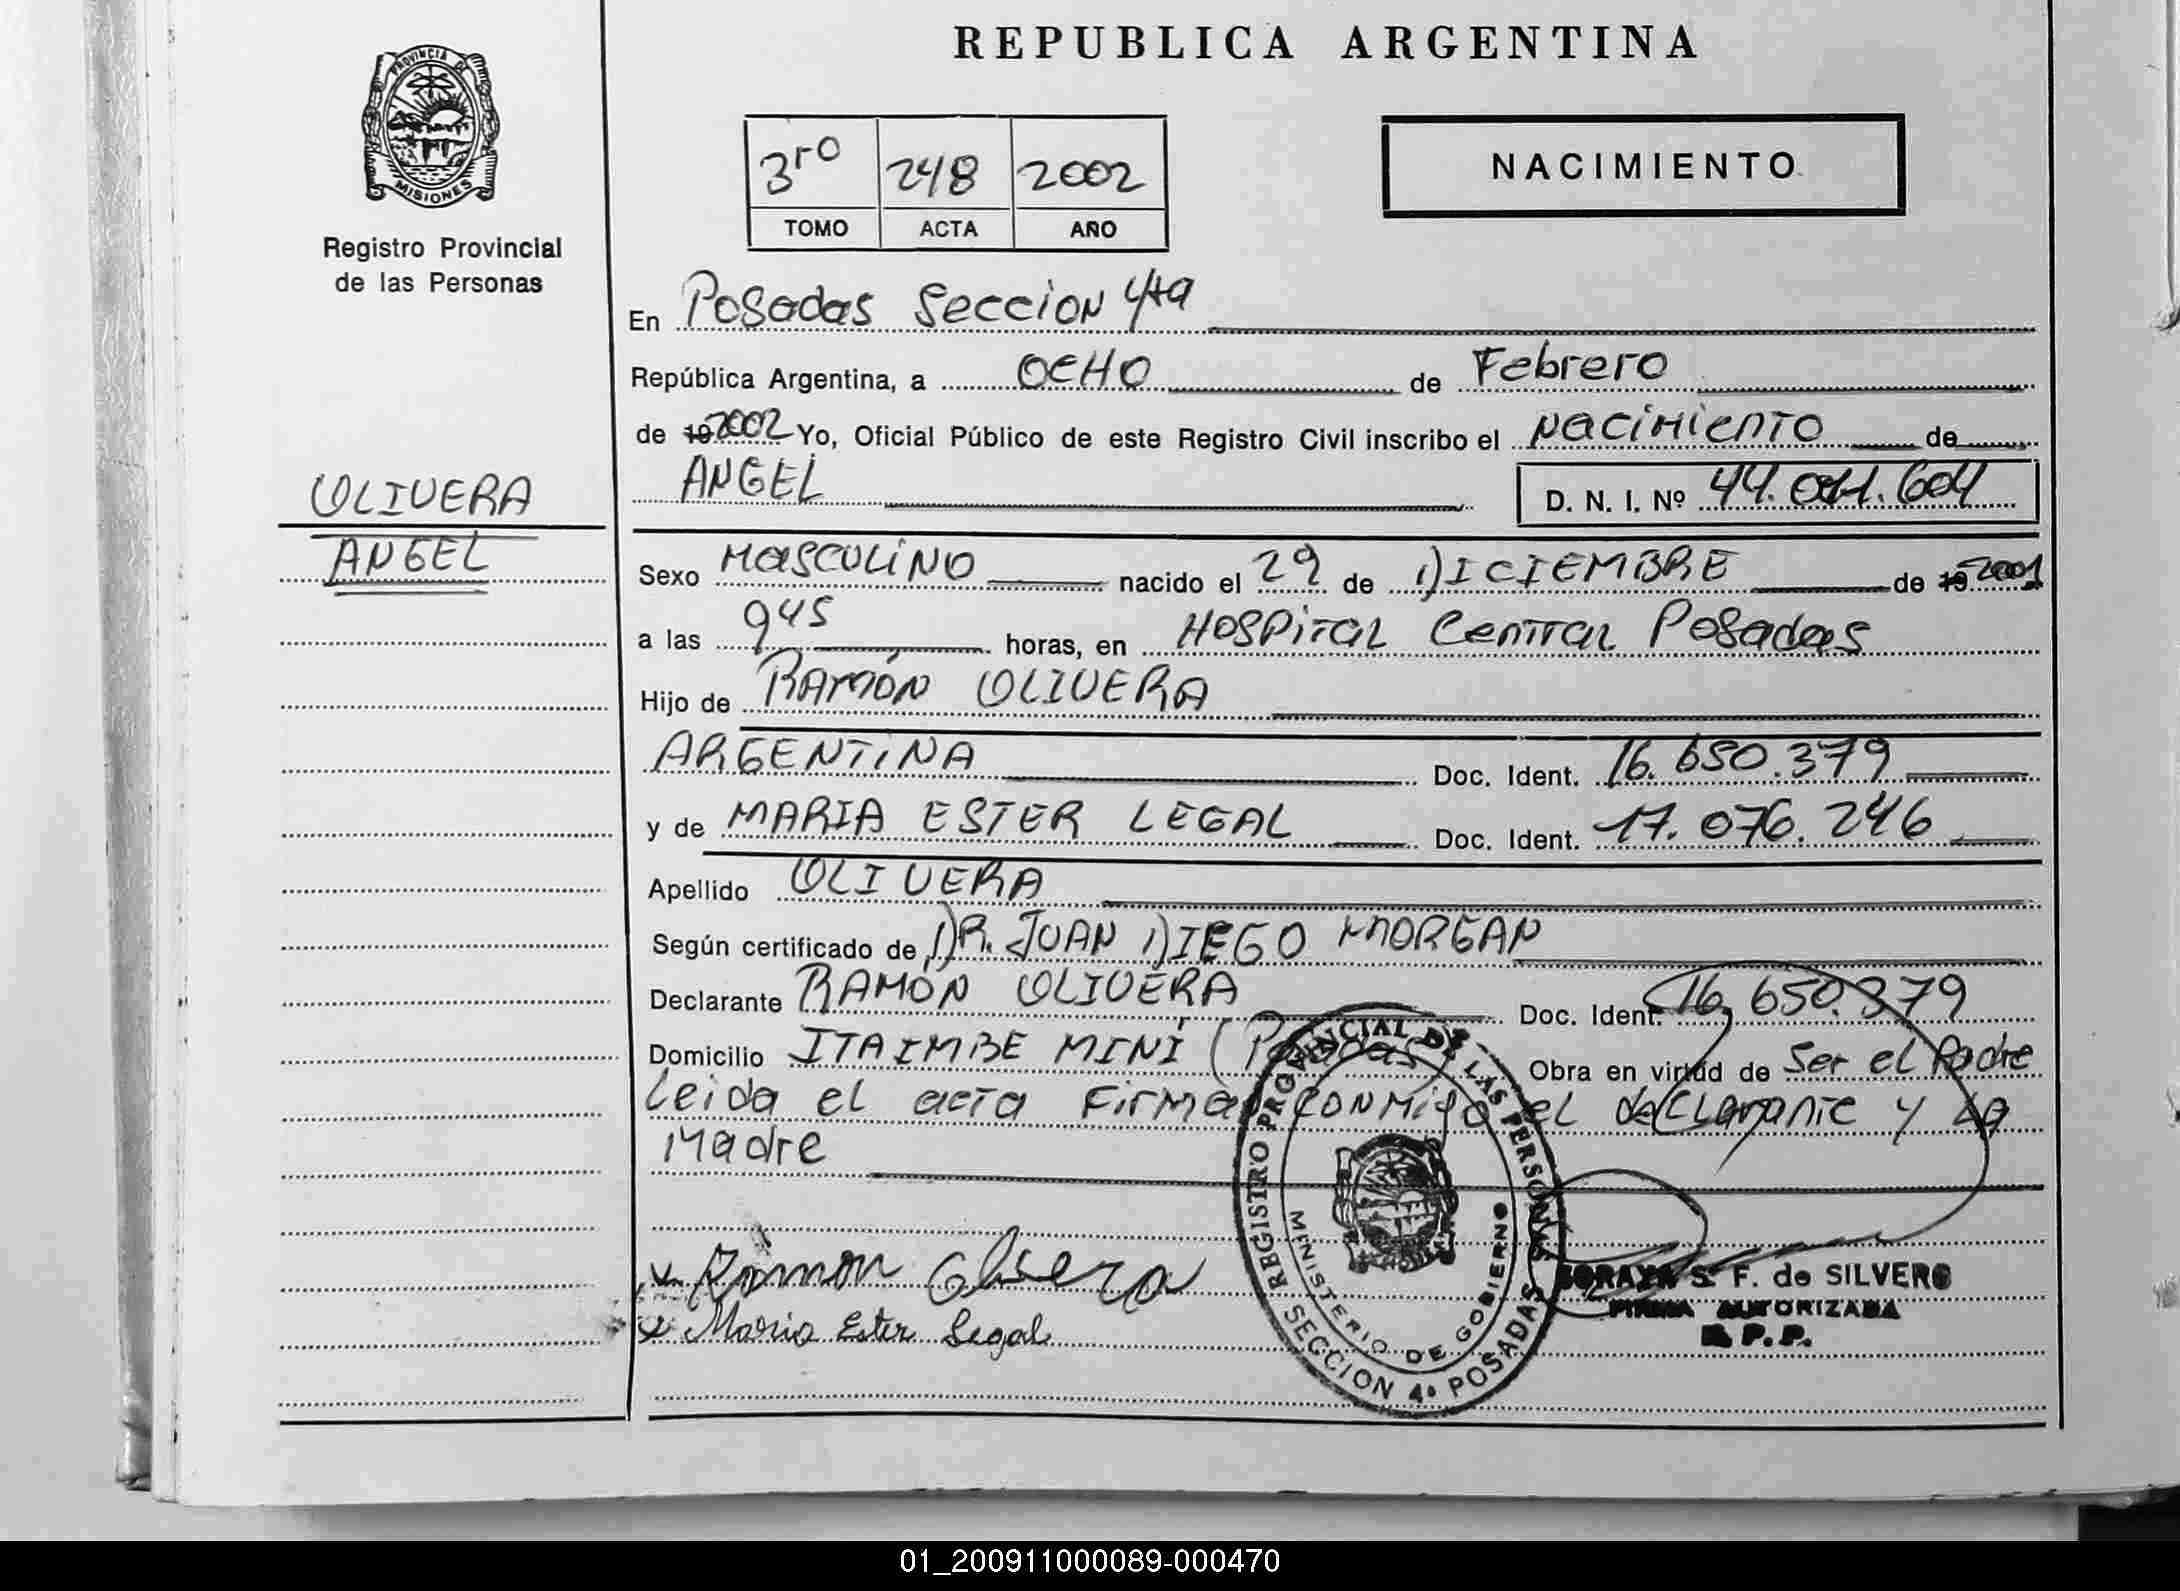 REPUBLICA ARGENTINA
PROVINCIA DE
MISIONES
Registro Provincial
de las Personas
3ro 248 2002
TOMO ACTA AÑO
NACIMIENTO
En Posadas Seccion 4ta
República Argentina, a OCHO de Febrero
de 19 2002 Yo, Oficial Público de este Registro Civil inscribo el Nacimiento de
ANGEL D. N. I. Nº 44.011.604
OLIVERA
ANGEL
Sexo Masculino nacido el 29 de DICIEMBRE de 19 2001
a las 945 horas, en Hospital Central Posadas
Hijo de RAMÓN OLIVERA
ARGENTINA Doc. Ident. 16.650.379
y de MARIA ESTER LEGAL Doc. Ident. 17.076.246
Apellido OLIVERA
Según certificado de DR. JUAN DIEGO MORGAN
Declarante RAMÓN OLIVERA Doc. Ident. 16.650.379
Domicilio ITAIMBE MINÍ (Posadas) Obra en virtud de Ser el Padre
Leida el acta Firman conmigo el declarante y la
Madre
x Ramon Olivera
x Maria Ester Legal
REGISTRO PROVINCIAL DE LAS PERSONAS
MINISTERIO DE GOBIERNO
SECCION 4ª POSADAS
SORAYA S. F. de SILVERO
FIRMA AUTORIZADA
R.P.P.
01_200911000089-000470